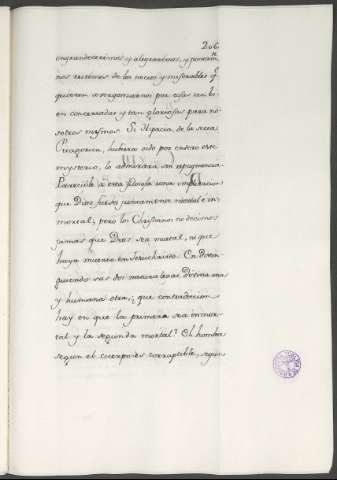 206
engrandecerémos y alegrarémos, y
nos reirémos de los necios y miserables q.
quieren avergonzarnos por cosas tan bi-
en concertadas y tan gloriosas para no-
sotros mismos. Si Hipacia, de la secta
Pitagorica, hubiera oido por entero este
mysterio, lo admirará sin repugnancia.
Parecible á esta filosofa una
que Dios fuese juntamente mortal é in-
mortal; pero los Christianos no decimos
jamas que Dios sea mortal, ni que
haya muerto en Jesuchristo. En
las dos naturalezas, Divina una
y humana otra, ¿que contradiccion
hay en que la primera sea inmor-
tal y la segunda mortal? El hombre
segun el cuerpo es corruptible, segun